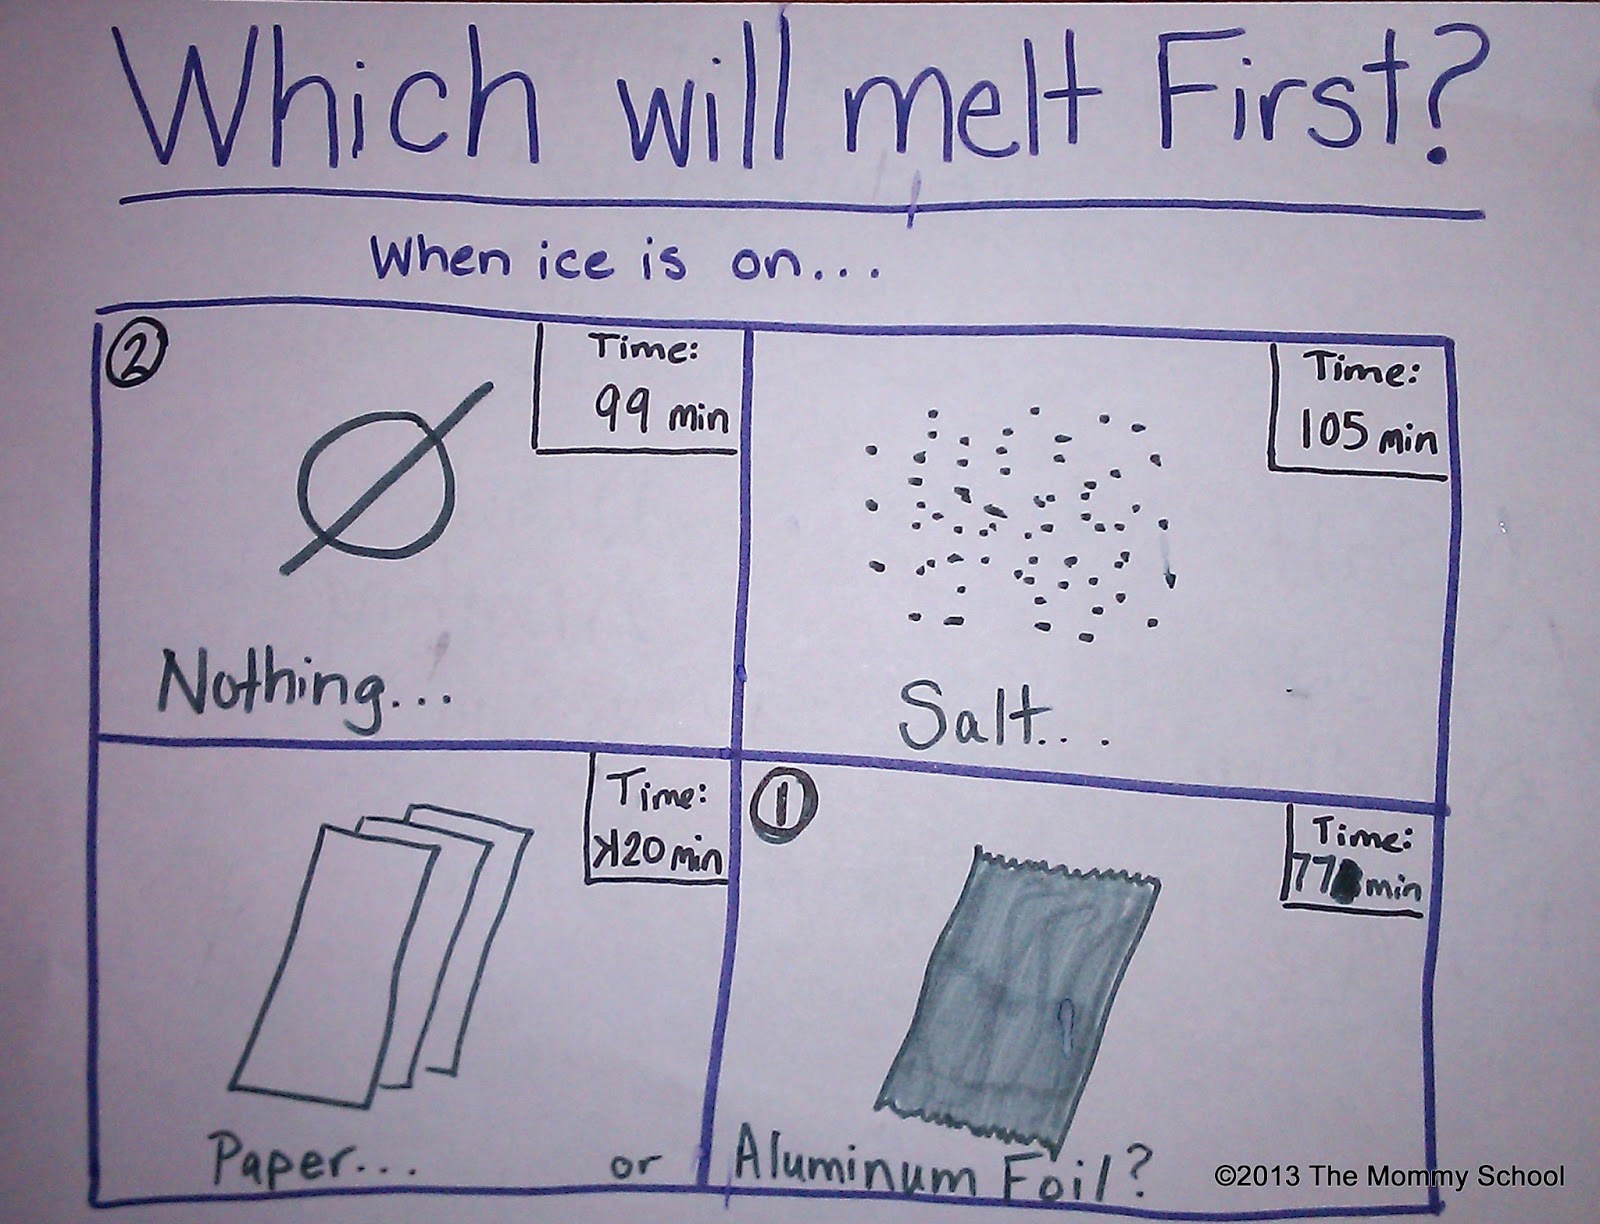 Which will melt First?
When ice is on...
2
Time:
99 min
Nothing...
Time:
105 min
Salt...
Time:
120 min
Paper... or
1
Time:
77 min
Aluminum Foil?
©2013 The Mommy School